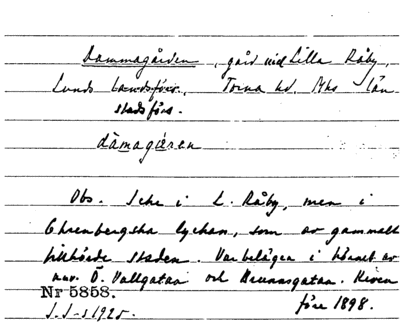 Dammagården, gård vid Lilla Råby,
Lunds landsförs., Torna hd. Mhs län
stadsförs.
dàmagàren
Obs. Icke i L. Råby, men i
Ehrenbergska lyckan, som av gammalt
tillhörde staden. Var belägen i hörnet av
nuv. Ö. Vallgatan och Brunnsgatan. Riven
före 1898.
Nr 5858.
1925.